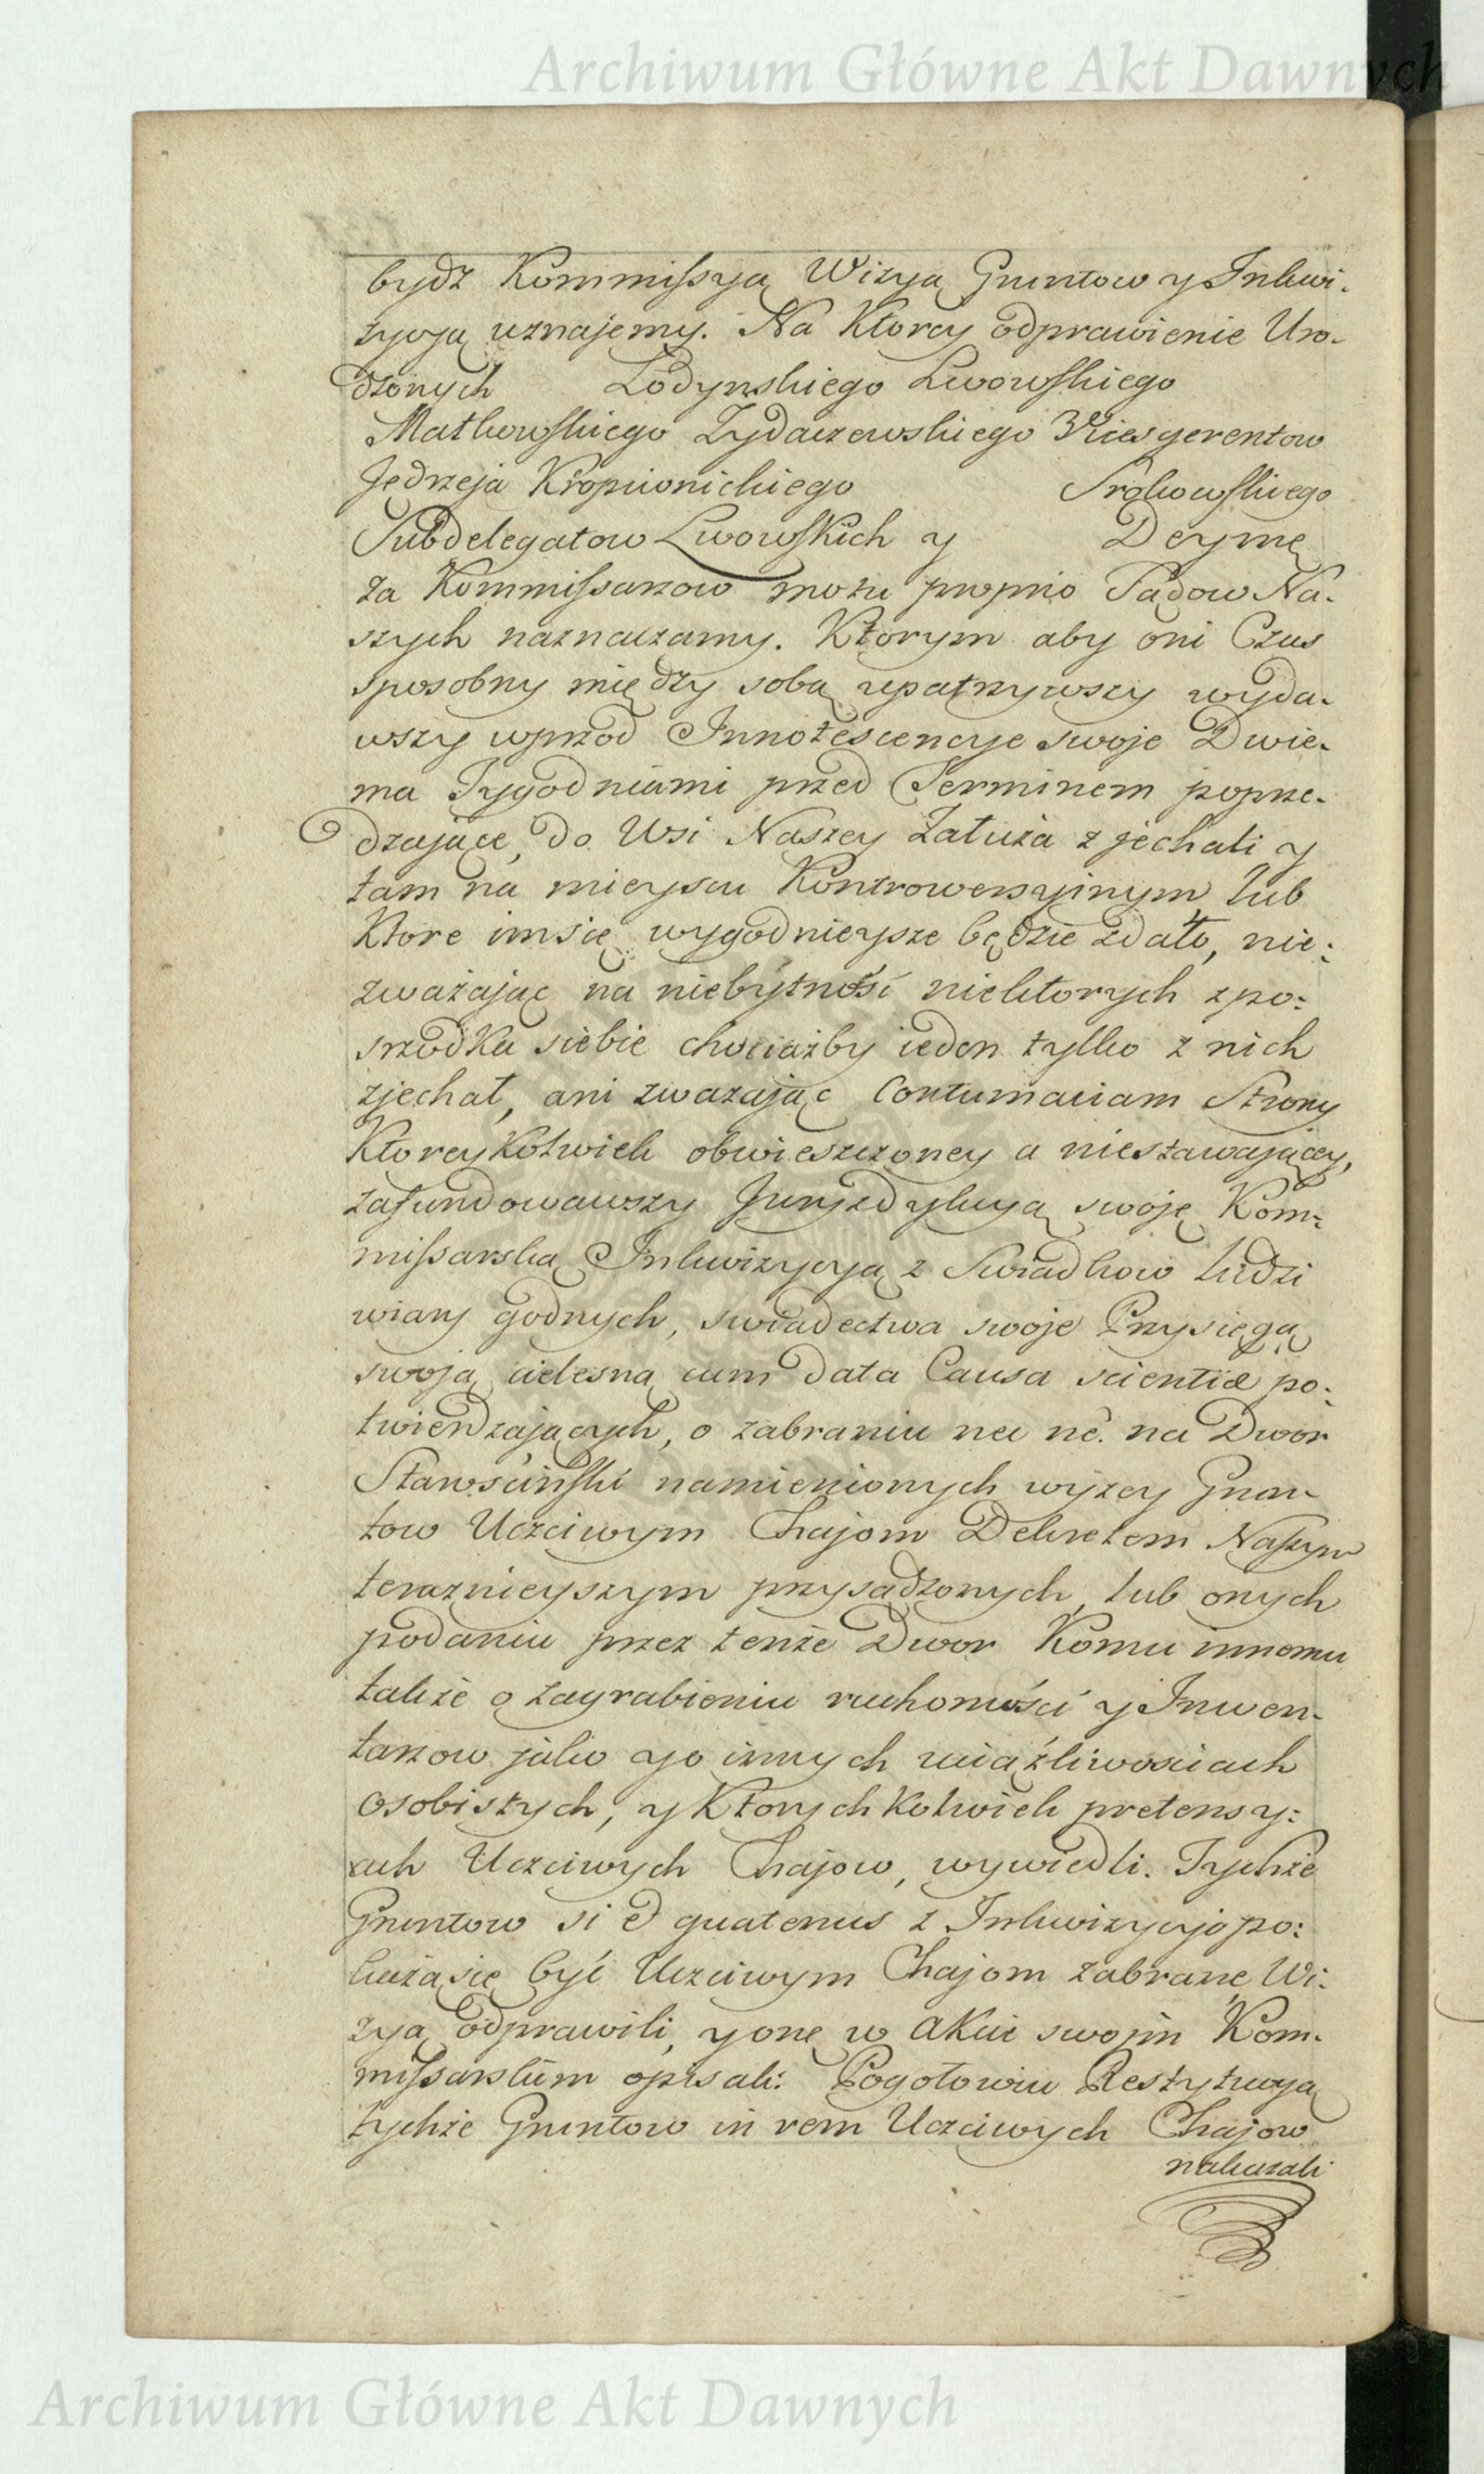 Archiwum Główne Akt Dawnych
bydź Kommissyą Wizyą Gruntow y Inkwi-
zycyą uznajemy. Na Ktorey odprawienie Uro-
dzonych Łodynskiego Lwowskiego
Matkowskiego Zydaczewskiego Vicesgerentow
Jędrzeja Kropiwnickiego
Subdelegatow Lwowskich y Deymę
za Kommissarzow motu proprio Sądow Na-
szych naznaczamy. Ktorym aby oni Czas
sposobny między sobą upatrzywszy wyda-
wszy wprzod Innotescencye swoje Dwie-
ma Tygodniami przed Terminem poprze-
dzaiące, do Wsi Naszey Załuża zjechali y
tam na mieyscu Kontrowersyinym lub
Ktore imsię wygodnieysze będzie zdało, nie:
zważając na niebytność niektorych zpo:
srzodku siebie chociażby ieden tylko z nich
zjechał, ani zwazając Contumaciam Strony
Ktoreykolwiek obwieszczoney a niestawaiącey,
zafundowawszy Juryzdykcyą swoję Kom:
missarską Inkwizycyą z Swiadkow ludzi
wiary godnych, swiadectwa swoje Przysięgą
swoją cielesną cum data Causa scientiæ po:
twierdzających, o zabraniu na nc. na Dwor
Starościński namienionych wyzey Grun
tow Uczciwym Chajom Dekretem Naszym
teraznieyszym przysądzonych, lub onych
podaniu przez tenże Dwor Komu innemu
także o zagrabieniu ruchomości y Inwen-
tarzow jako y o innych uciążliwosciach
osobistych, y Ktorychkolwiek pretensy:
ach Uczciwych Chajow, wywiedli. Tychże
Gruntow si & quatenus z Inkwizycyi po:
każą się być Uczciwym Chajom zabrane, Wi:
zyą odprawili, y onę w akcie swoim Kom-
missarskim opisali: Pogotowiu Restytucyą
tychże Gruntow in rem Uczciwych Chajow
nakazali
Archiwum Główne Akt Dawnych